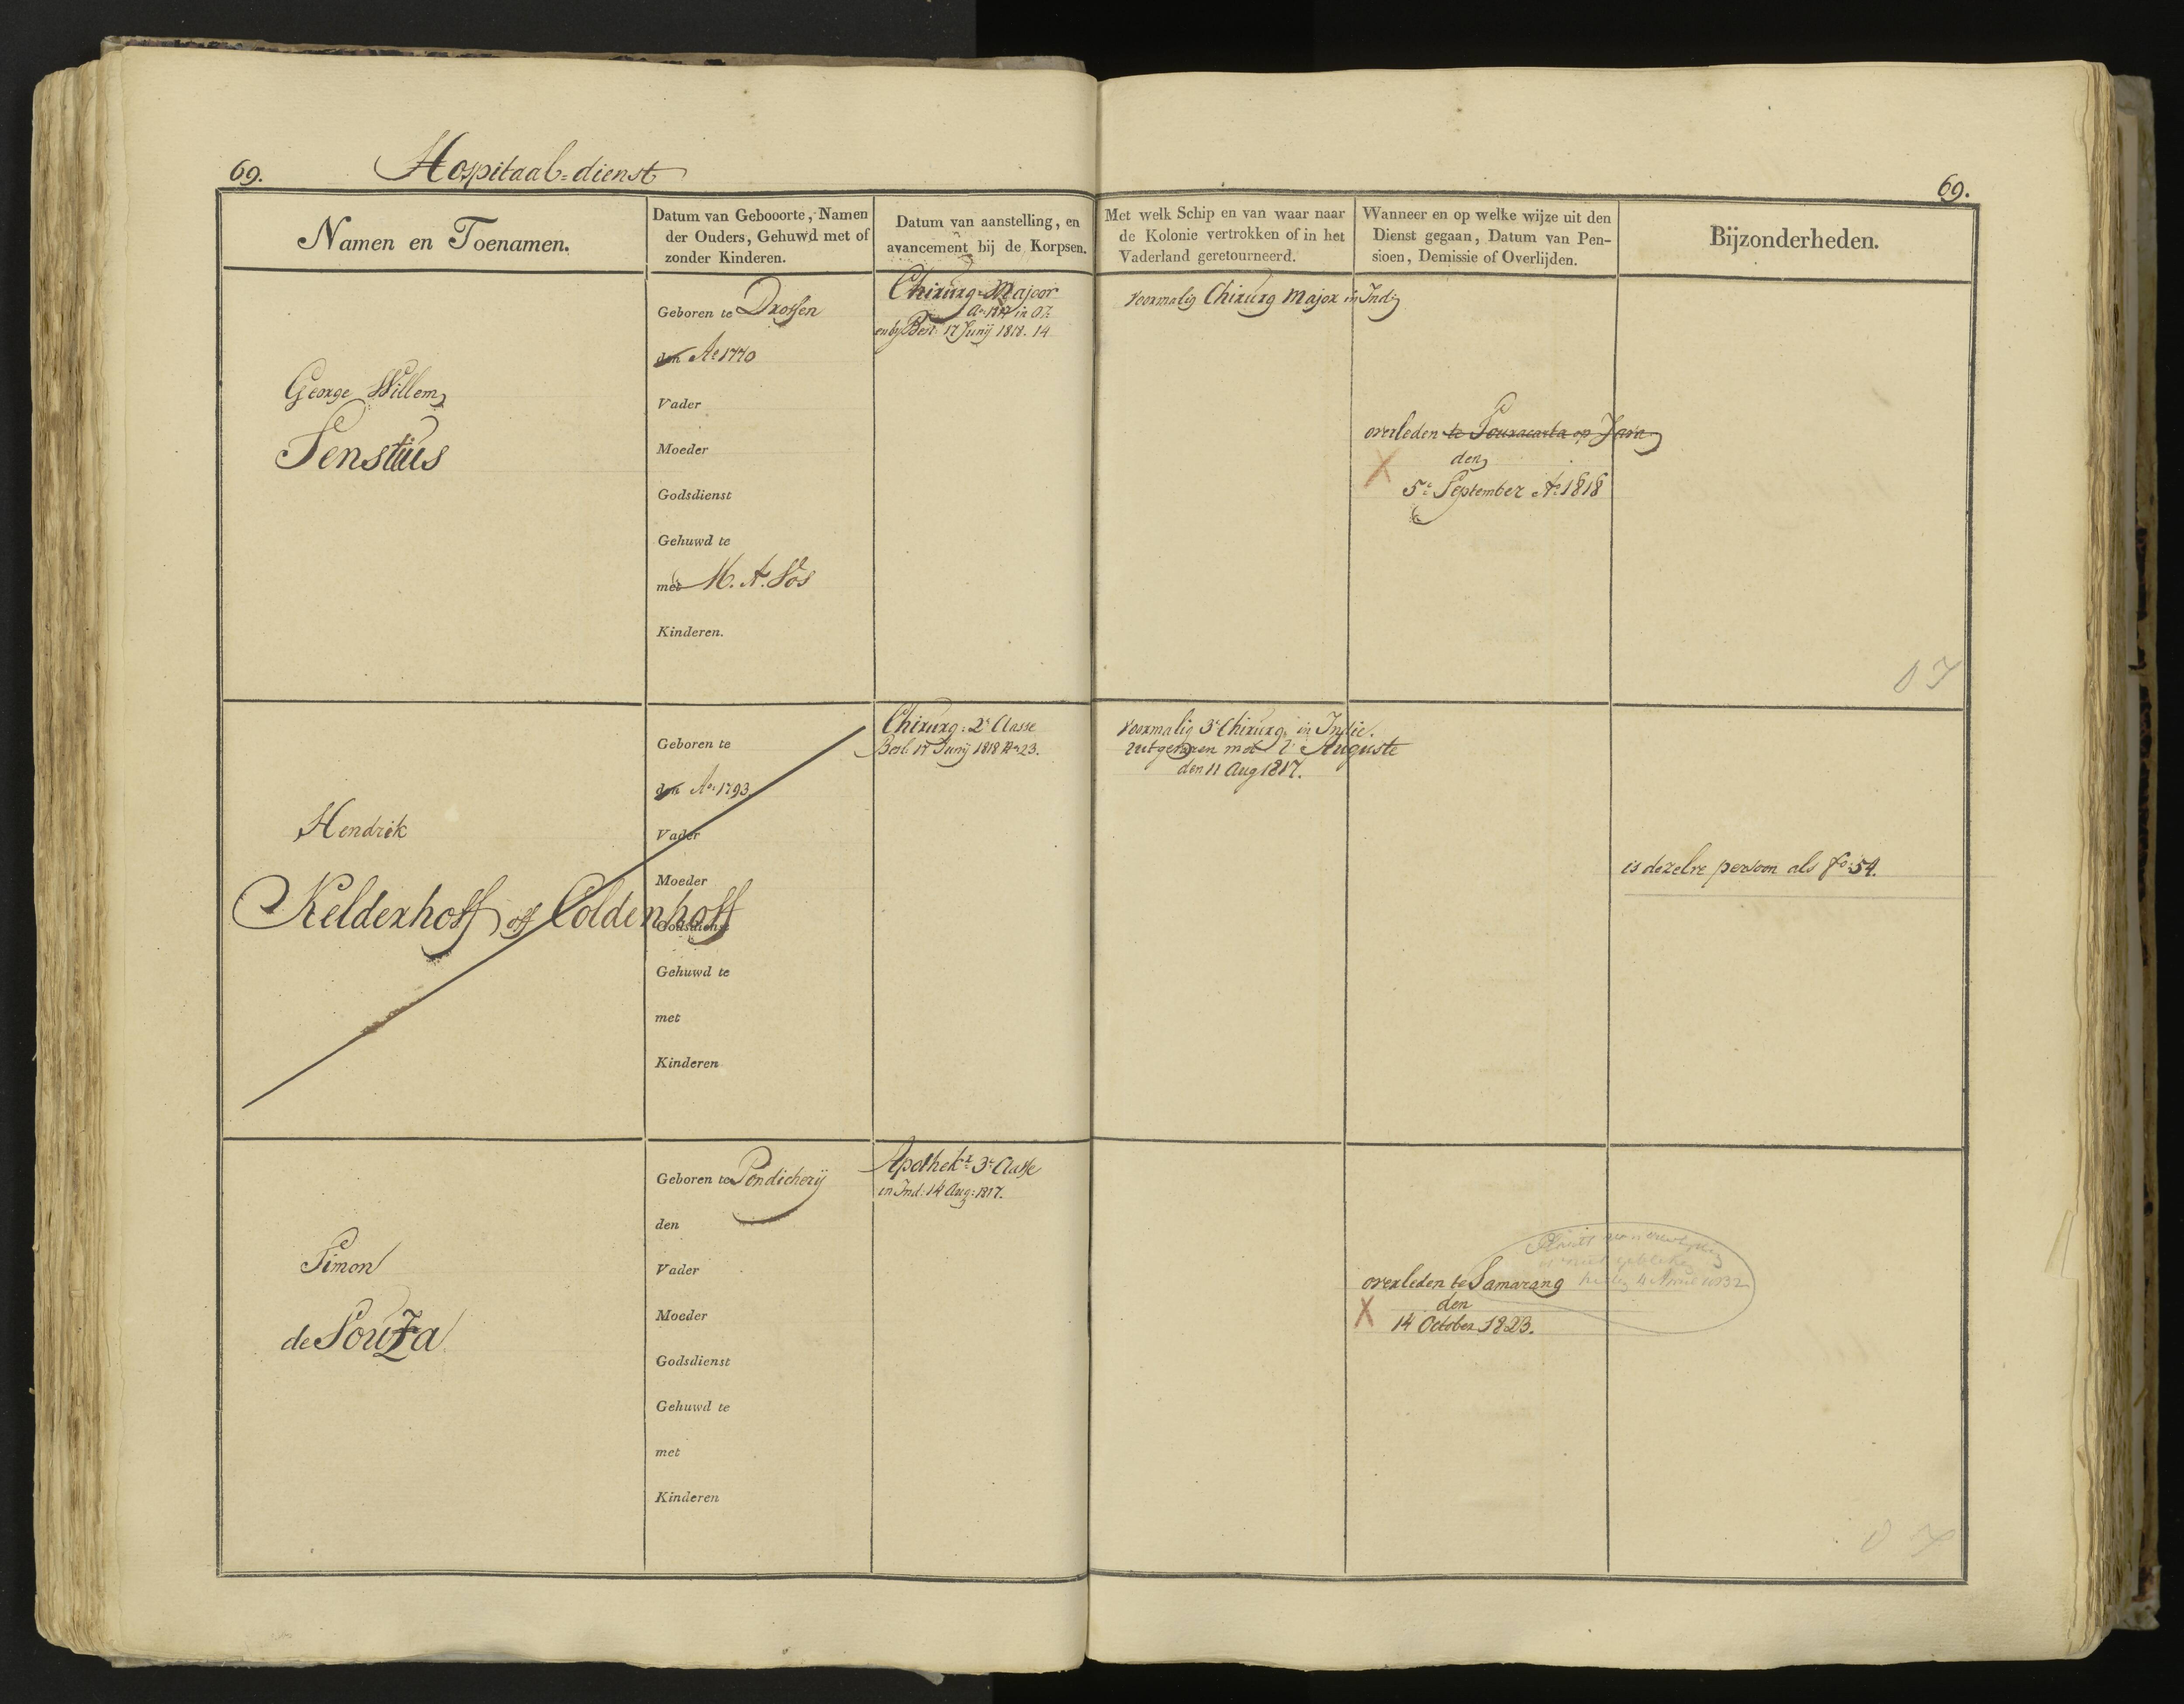 69. Hospitaal=dienst
69.
Namen en Toenamen.
Datum van Gebooorte, Namen
der Ouders, Gehuwd met of
zonder Kinderen.
Datum van aanstelling, en
avancement bij de Korpsen.
Met welk Schip en van waar naar
de Kolonie vertrokken of in het
Vaderland geretourneerd.
Wanneer en op welke wijze uit den
Dienst gegaan, Datum van Pen-
sioen, Demissie of Overlijden.
Bijzonderheden.
George Willem
Senstius
Geboren te Drossen
den Ao 1770
Vader
Moeder
Godsdienst
Gehuwd te
met M. A. Vos
Kinderen.
Chirurg=Majoor
in
en bij Besl: 17 Junij 1818. 14
Voormalig Chirurg Major in Indi
overleden te Souracarta op Java
den
5e September Ao 1818
O I
Hendrik
Kelderhoff off Coldenhoff
Geboren te
den Ao 1793.
Vader
Moeder
Godsdienst
Gehuwd te
met
Kinderen
Chirurg: 2e Classe
Besl. 17 Junij 1818 No 23.
Voormalig 3e Chirurg: in Indie.
met l'Auguste
den 11 Aug 1817.
is dezelve persoon als fo: 54.
Simon
de Souza
Geboren te Pondicherij
den
Vader
Moeder
Godsdienst
Gehuwd te
met
Kinderen
Apothekr 3e Classe
in Ind: 14 Aug: 1817.
overleden te Samarang
den
14 October 1823.
4 April 1832